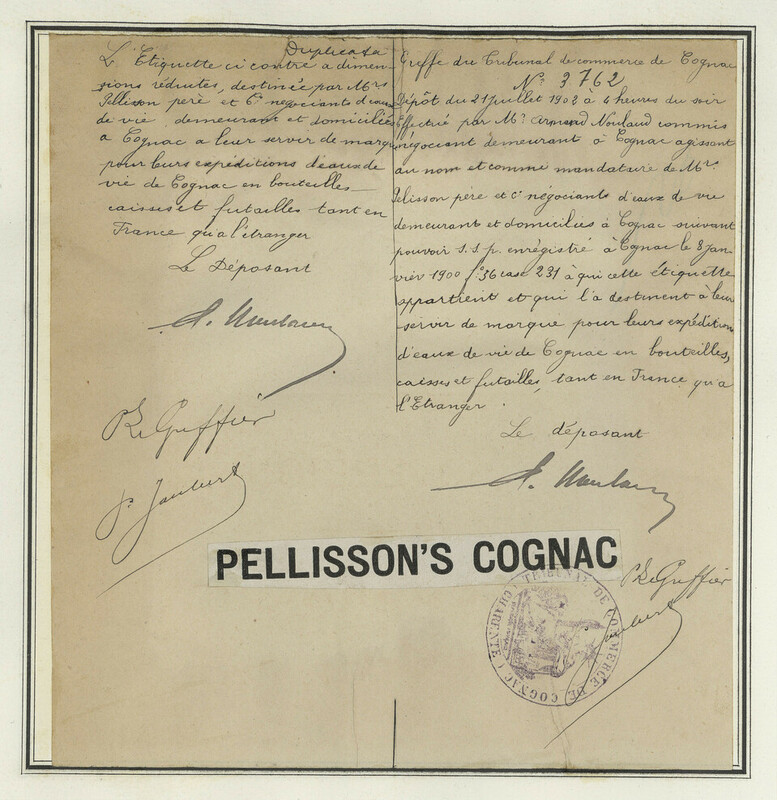 Duplicata
L'Etiquette ci contre a dimen-
sions réduites, destinée par Mrs
Pellisson père et Cie négociants d'eaux
de vie demeurant et domiciliés
a Cognac a leur servir de marque
pour leurs expéditions d'eaux de
vie de Cognac en bouteilles
caisses et futailles tant en
France qu'a l'étranger
Le Déposant
A. Noulaud
Pr Le Greffier
J. Jaubert
Greffe du Tribunal de commerce de Cognac
No 3762
Dépôt du 21 juillet 1902 à 4 heures du soir
Effectué par Mr Armand Noulaud commis
négociant demeurant à Cognac agissant
au nom et comme mandataire de Mrs
Pelisson père et Cie négociants d'eaux de vie
demeurant et domiciliés à Cognac suivant
pouvoir s.s.p. enregistré à Cognac le 8 Jan-
vier 1900 fo 36 case 231 à qui cette étiquette
appartient et qui l'a destinent à leur
servir de marque pour leurs expéditions
d'eaux de vie de Cognac en bouteilles,
caisses et futailles, tant en France qu'a
l'Etranger.
Le déposant
A. Noulaud
PELLISSON'S COGNAC
Pr Le Greffier
Jaubert
TRIBUNAL DE COMMERCE DE COGNAC (CHARENTE)